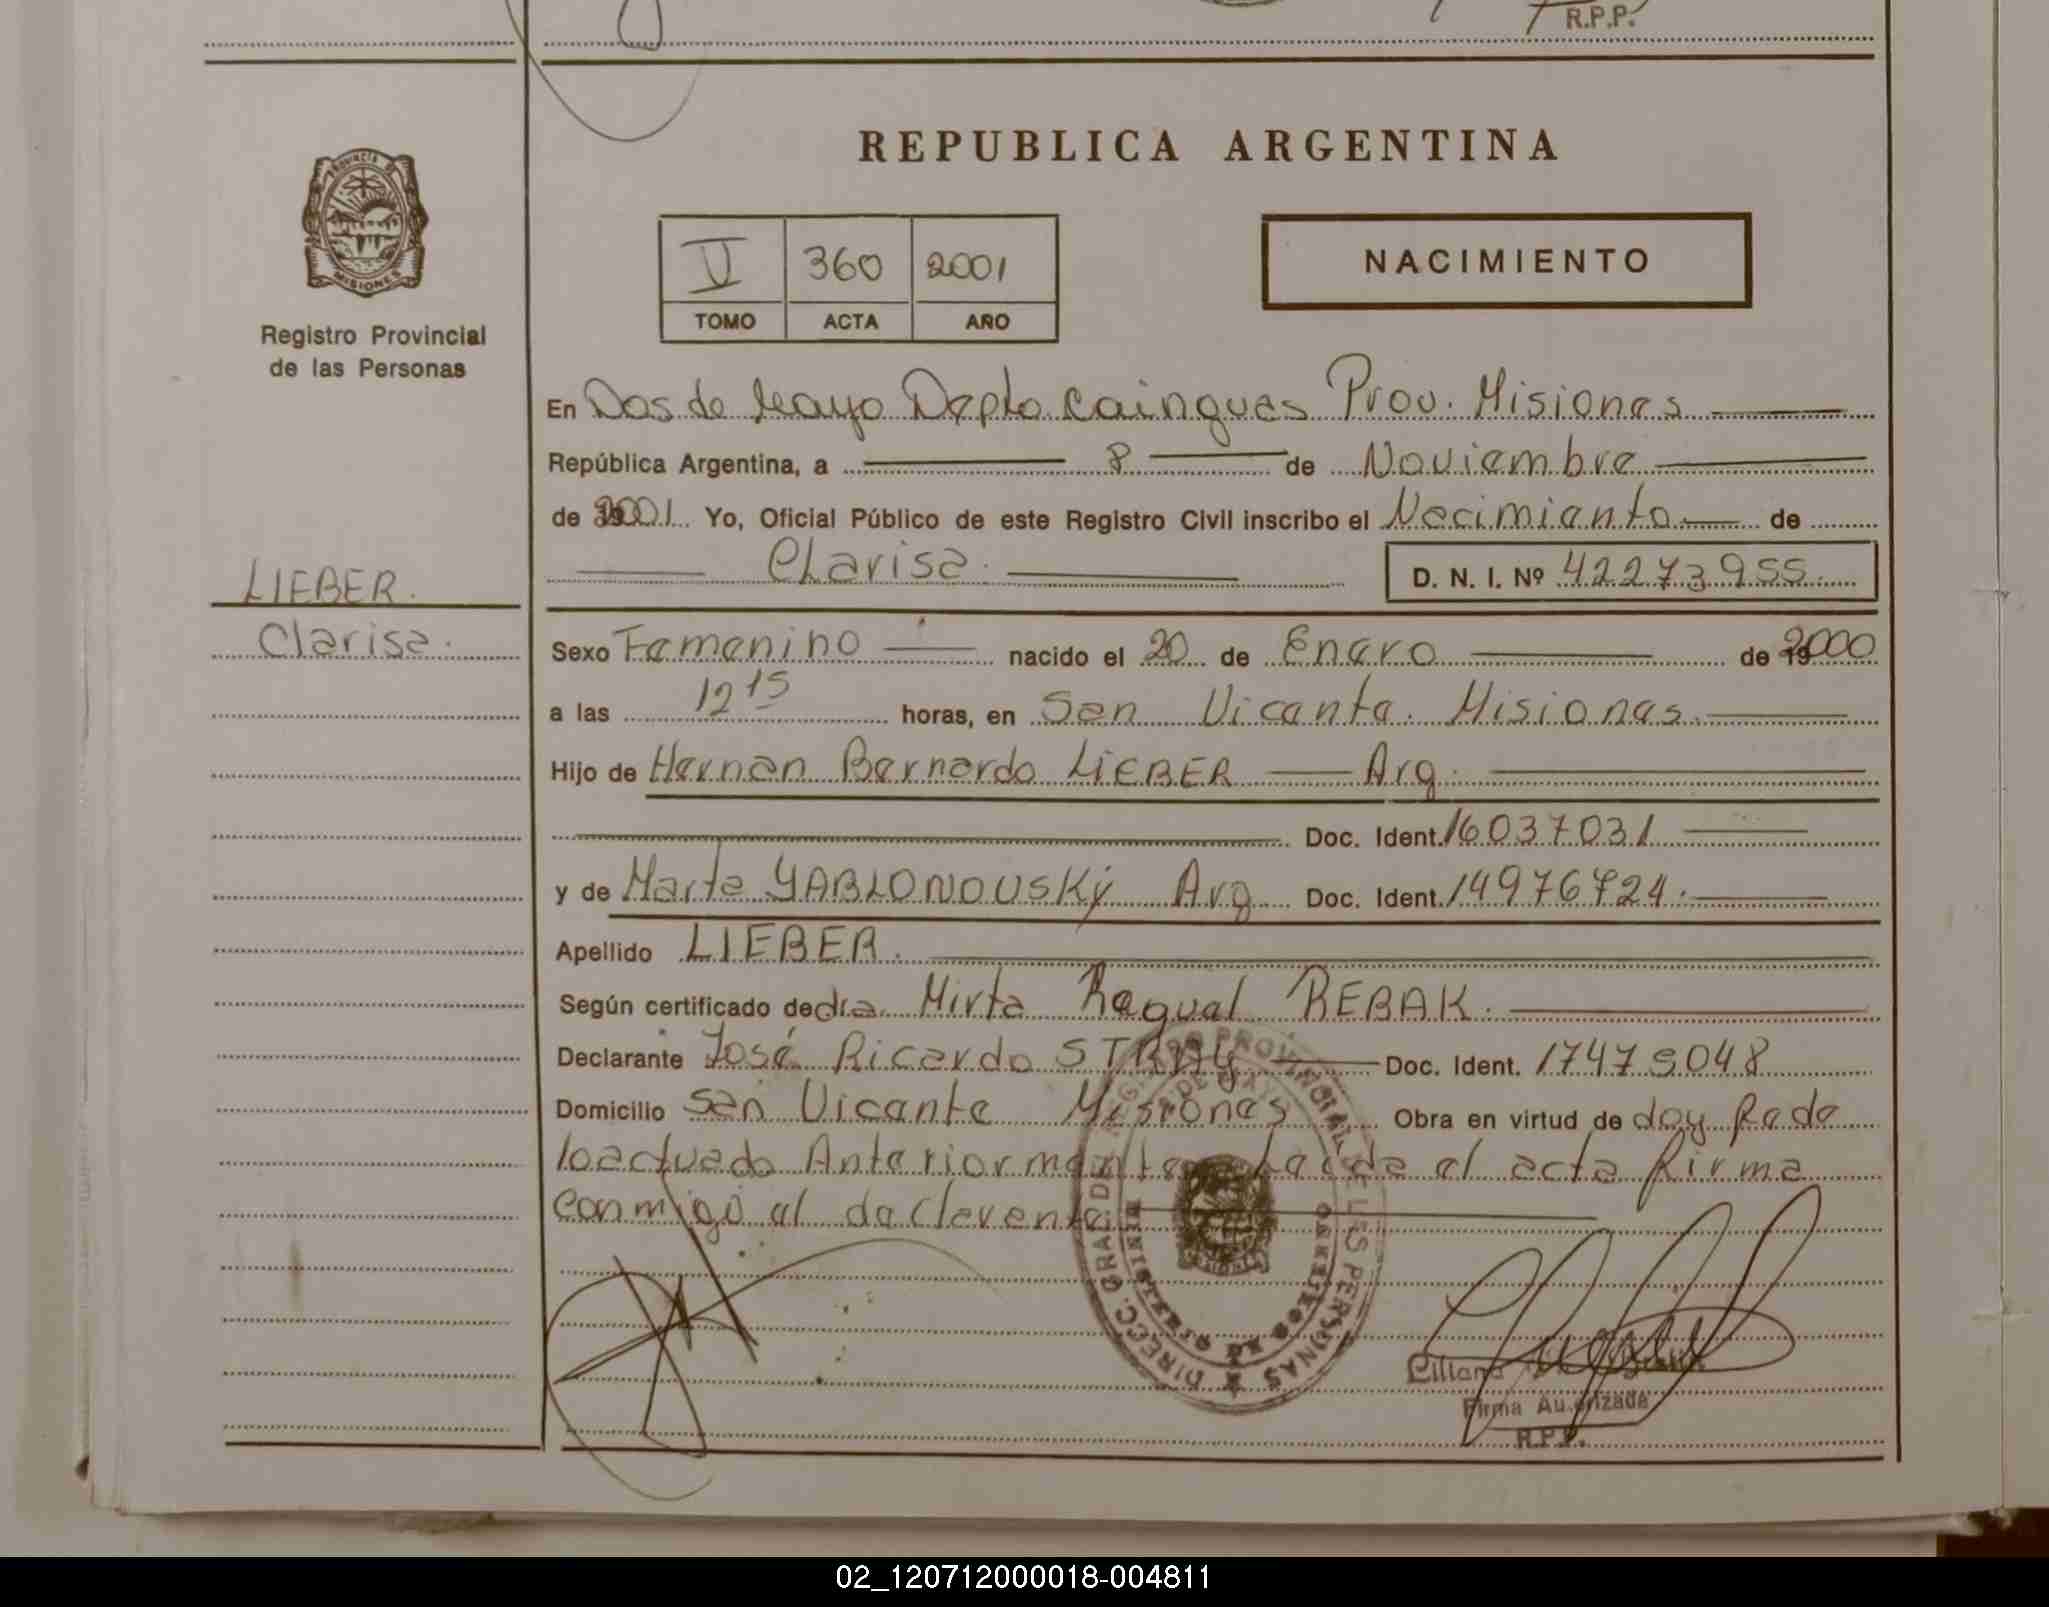 R.P.P.
REPUBLICA ARGENTINA
PROVINCIA DE
MISIONES
Registro Provincial
de las Personas
V 360 2001
TOMO ACTA AÑO
NACIMIENTO
En Dos de Mayo Depto Cainguas Prov. Misiones
República Argentina, a 8 de Noviembre
de 2001 Yo, Oficial Público de este Registro Civil inscribo el Nacimiento de
Clarisa. D. N. I. Nº 42273955
LIEBER.
Clarisa.
Sexo Femenino nacido el 20 de Enero de 2000
a las 12 15 horas, en San Vicente. Misiones.
Hijo de Hernan Bernardo LIEBER Arg.
Doc. Ident. 16037031
y de Marta YABLONOUSKY Arg Doc. Ident. 14976724.
Apellido LIEBER.
Según certificado de dra. Mirta Raquel REBAK.
Declarante José Ricardo Doc. Ident. 17479048
Domicilio San Vicente Misiones Obra en virtud de doy fe de
lo actuado Anteriormente Leida el acta firma
conmigo el declarente
DIRECC. GRAL. DE REGISTRO PROVINCIAL DE LAS PERSONAS
MINISTERIO DE GOBIERNO
Liliana
Firma Autorizada
R.P.P.
02_120712000018-004811